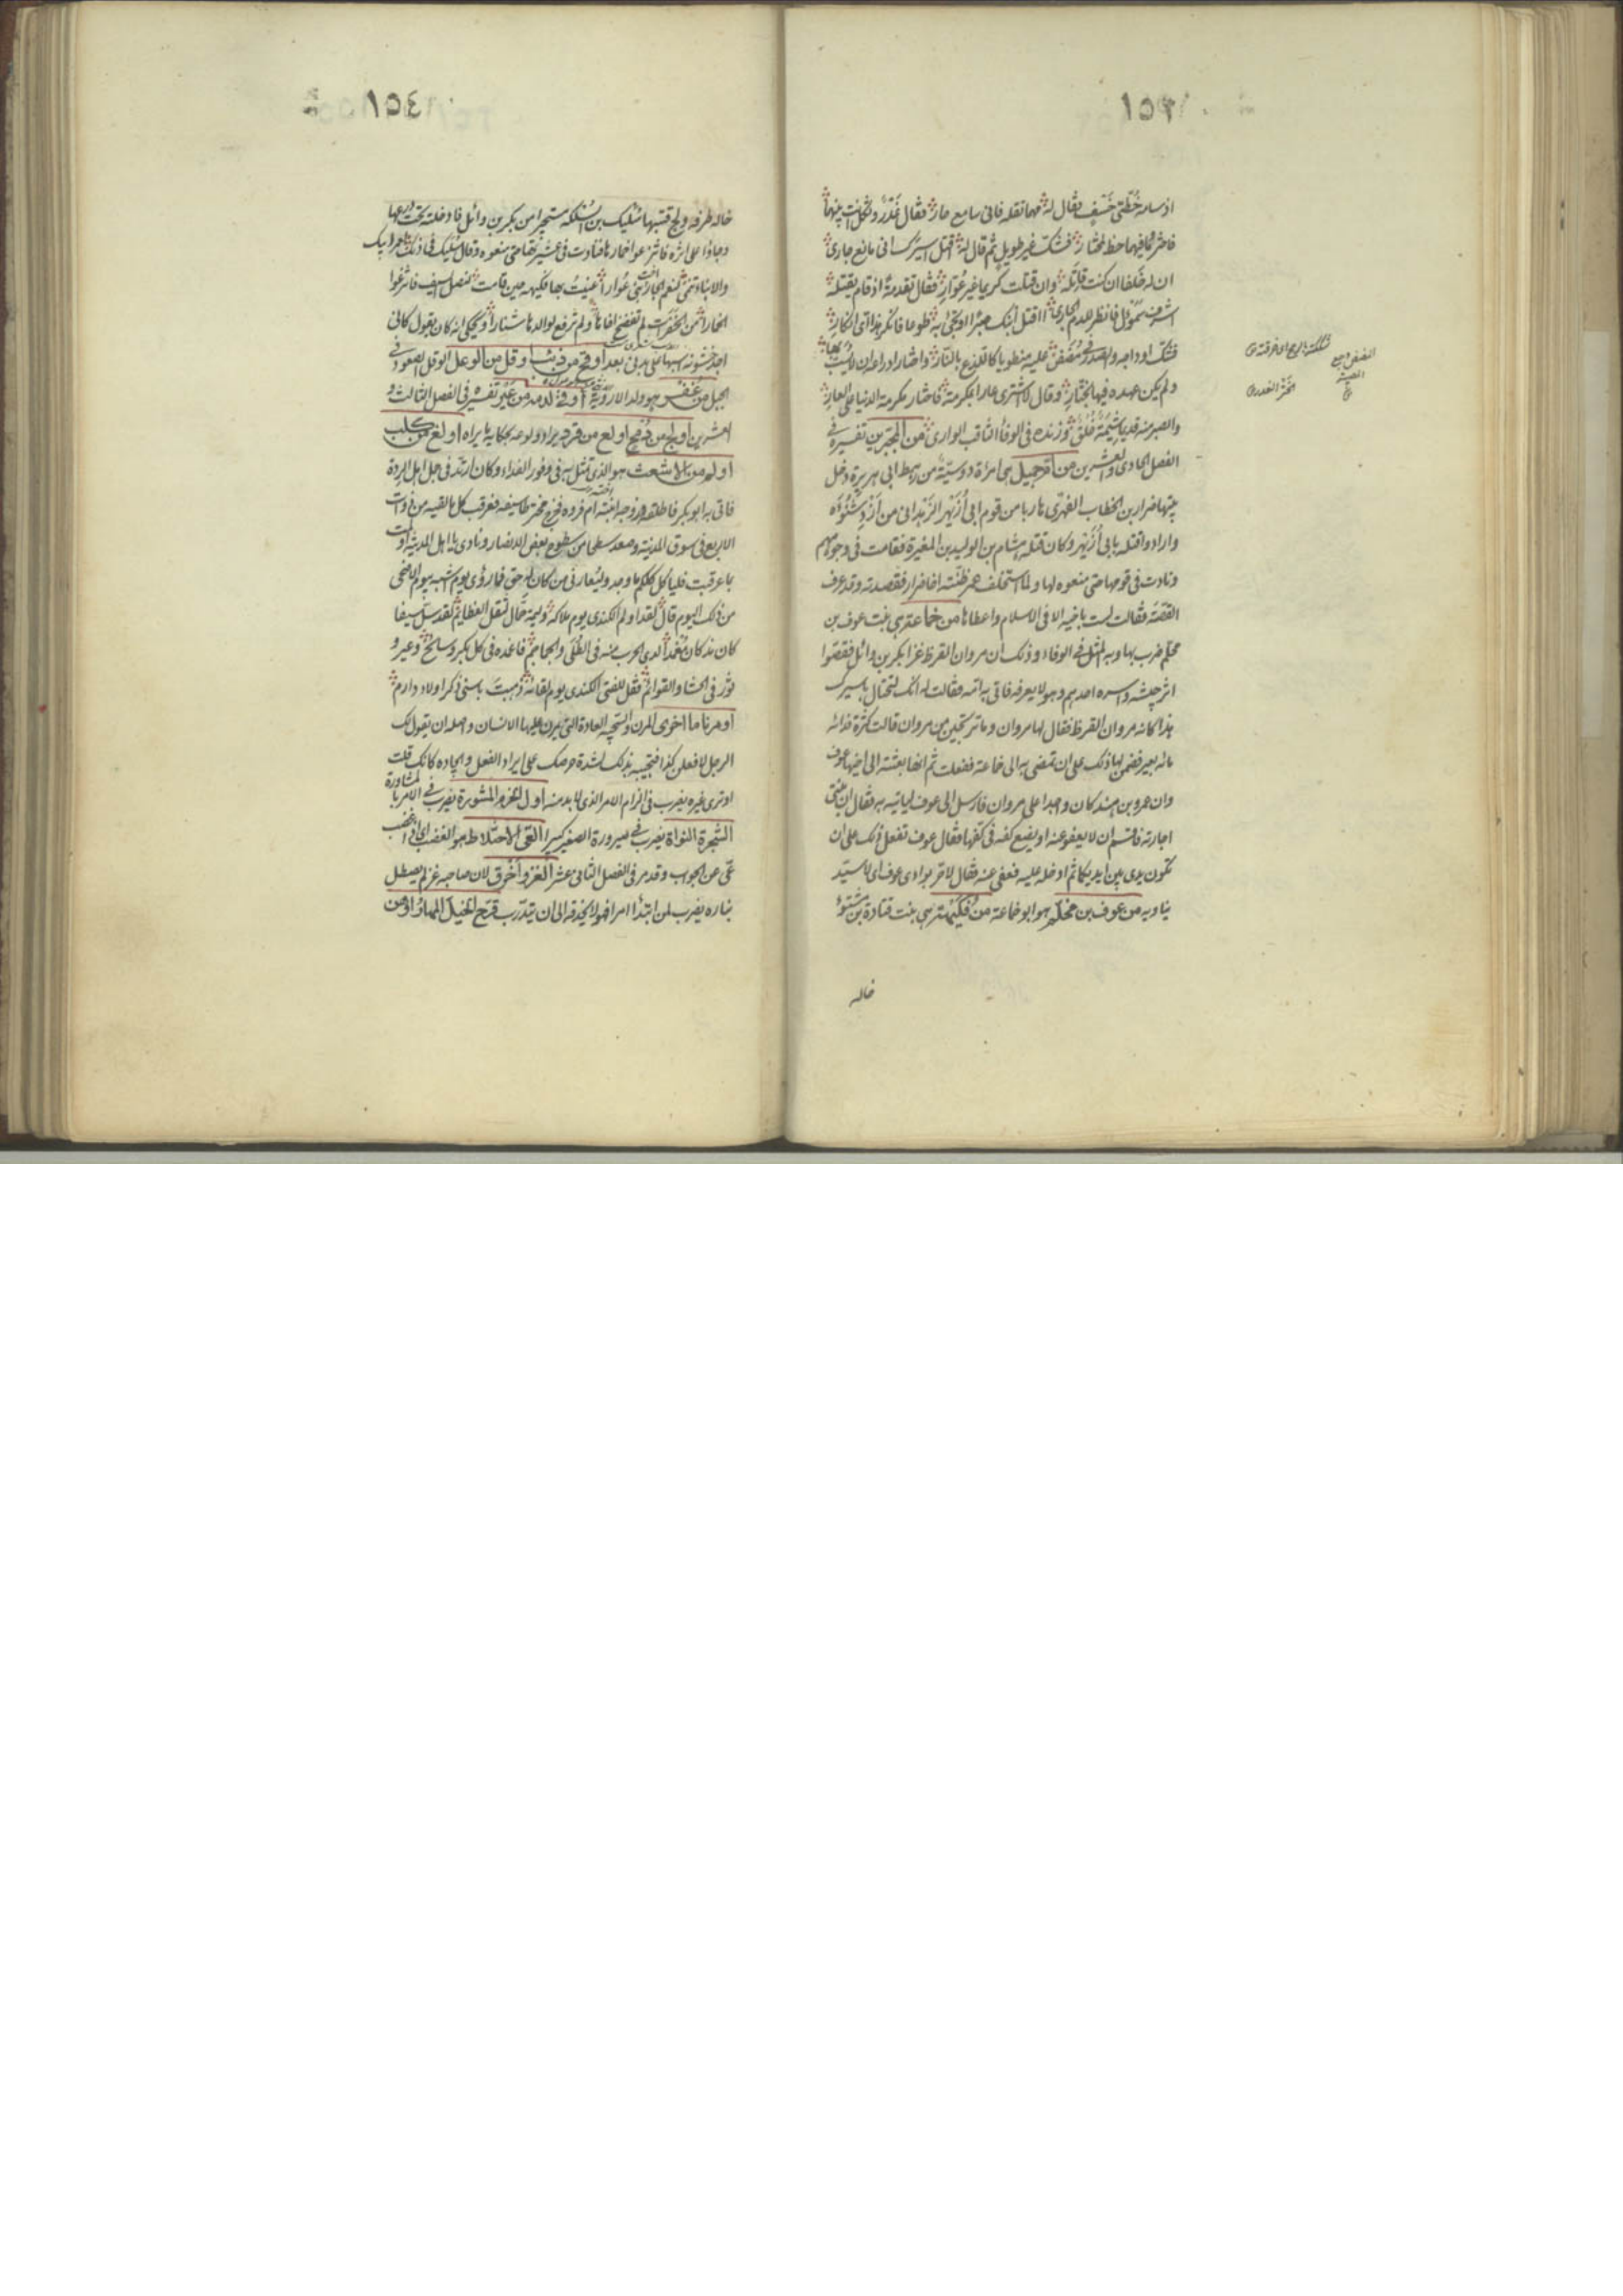 ١٥٣
اذ سامه خُطّتى خَسْفٍ فقال له مهما تقله فانى سامع حار فقال غَدْرٌ وثكل انت بينهما
فاختر فما فيهما حظ لمختار فشكّ غير طويل ثم قال له اقتل اسيرك انى مانع جارى
ان له خلفا ان كنت قاتله وان قتلت كريما غير عُوّار فقال تقدمةً اذ قام يقتله
اشرف سموأل فانظر للدم الجارى أأقتل ابنك صبرا او تجئ بها طوعا فانكر هذا اى انكار
فشكّ اوداجه والصدر فى مضض عليه منطويا كاللذع بالنار واختار ادراعه ان لا يسب بها
ولم يكن عهده فيها بختار وقال لا اشترى عارا بمكرمة فاختار مكرمة الدنيا على العار
والصبر منه قديما شيمة خُلُق وزنده فى الوفاء الثاقب الوارى من المجبّرين تفسيره فى
الفصل الحادى والعشرين من ام جميل هى امرأة دوسيّة من رهط ابى هريرة دخل
بيتها ضرار بن الخطاب الفهرى هاربا من قوم ابى أُزَيْهر الزهرانى من أَزْدِ شَنُوْءَه
وارادوا قتله بابى أُزَيْهر وكان قتله هشام بن الوليد بن المغيرة فقامت فى وجوههم
ونادت فى قومها حتى منعوه لها ولما استخلف عمر ظنّته اخا ضرار فقصدته وقد عرف
القصّة فقالت لست باخيه الا فى الاسلام واعطاها من خماعة هى بنت عوف بن
محلّم ضرب بها وبه المثل فى الوفاء وذلك ان مروان القرظ غزا بكر بن وائل فقصّوا
اثر جيشه واسره احدهم وهو لا يعرفه فاتى به امه فقالت له انك لتختال باسيرك
هذا كانه مروان القرظ فقال لها مروان وما ترتجين من مروان قالت كثرة فدائه
مائة بعير فضمن لها ذلك على ان تمضى به الى خماعة ففعلت ثم انها بعثته الى ابيها عوف
وان عمرو بن هند كان واجدا على مروان فارسل الى عوف لياتيه به فقال ان بنتى
اجارته فاقسم ان لا يعفو عنه او يضع كفه فى كفها فقال عوف تفعل ذلك على ان
تكون يدى بين ايديكما ثم ادخله عليه فعفى عنه فقال لا حر بوادى عوف اى لا سيّد
يناويه من عوف بن محلّم هو ابو خماعة من فُكَيْهة هى بنت قتادة بن مشنوء
خاله
١٥٤
خاله طرفه ولج قبتها سُلَيك بن السُلَكه مستجيرا من بكر بن وائل فادخلته تحت درعها
وجاؤا على اثره فانتزعوا خمارها فنادت فى عشيرتها حتى منعوه وقال سُليك فى ذلك لعمر ابيك
والانباء تنمى لنعم الجار اخت بنى عُوارا عنيتُ بها فكيهه حين قامت لنصل السيف فانتزعوا
الخمارا من الخَفِرات لم تفضح اخاها ولم ترفع لوالدها شنارا ويحكى انه كان يقول كانى
اجد خشونة اسبها على بدنى بعد اوقح من ذئب اوقل من الوعل الوقل الصعود فى
الجبل من غُفْر هو ولد الاروية أوقد لدمه من عَيْر تفسيره فى الفصل الثالث و
العشرين أولج من رُمْحٍ اولع من قرد يراد ولوعه بحكاية ما يراه اولغ من كلب
اولم من الاشعث هو الذى تمثل به فى وفور الغداء وكان ارتد فى جمل اهل الردة
فاتى به ابو بكر فاطلقه وزوجه اخته ام فروه فخرج مخترطا سيفه فعرقب كل ما لقيه من ذوات
الاربع فى سوق المدينة وصعد سطحا من سطوح بعض الانصار ونادى يا اهل المدينة اولمت
بما عرقبت فليأكل كلكم ما وجد وليتعارفنى من كان له حق فما رؤى يوم اشبه بيوم الاضحى
من ذلك اليوم قال لقد اولم الكندى يوم ملاكه وليمة حمّال لثقل العظائم لقد سلّ سيفا
كان مذ كان مُغْمَدا لدى الحرب منه فى الطُلَى والجماجم فاغمده فى كل بكر وسابح وعير و
ثور فى الحشا والقوائم فقل للفتى الكندى يوم لقائه ذهبت باسنى ذكر اولاد دارم
او مرنا ما اخرى المرن والسجيه العادة التى مرن عليها الانسان واصله ان يقول لك
الرجل لافعلن كذا فتجيبه بذلك لشدة حرصك على ايراد الفعل وايجاده كانك قلت
او ترى غيره يضرب فى الزام الامر الذى لا بد منه اول الحزم المشورة يضرب فى الامر بالمشاورة
الشجرة النواة يضرب فى صيرورة الصغير كبيرا العىّ الاختلاط هو الغضب اى اذا غضب
عىّ عن الجواب وقد مر فى الفصل الثانى عشر الغزو أخرق لان صاحبه غر لم يصطل
بناره يضرب لمن ابتدأ امرا فهو لا يحذقه الى ان يتدرب قرّح الخيل المهار او من